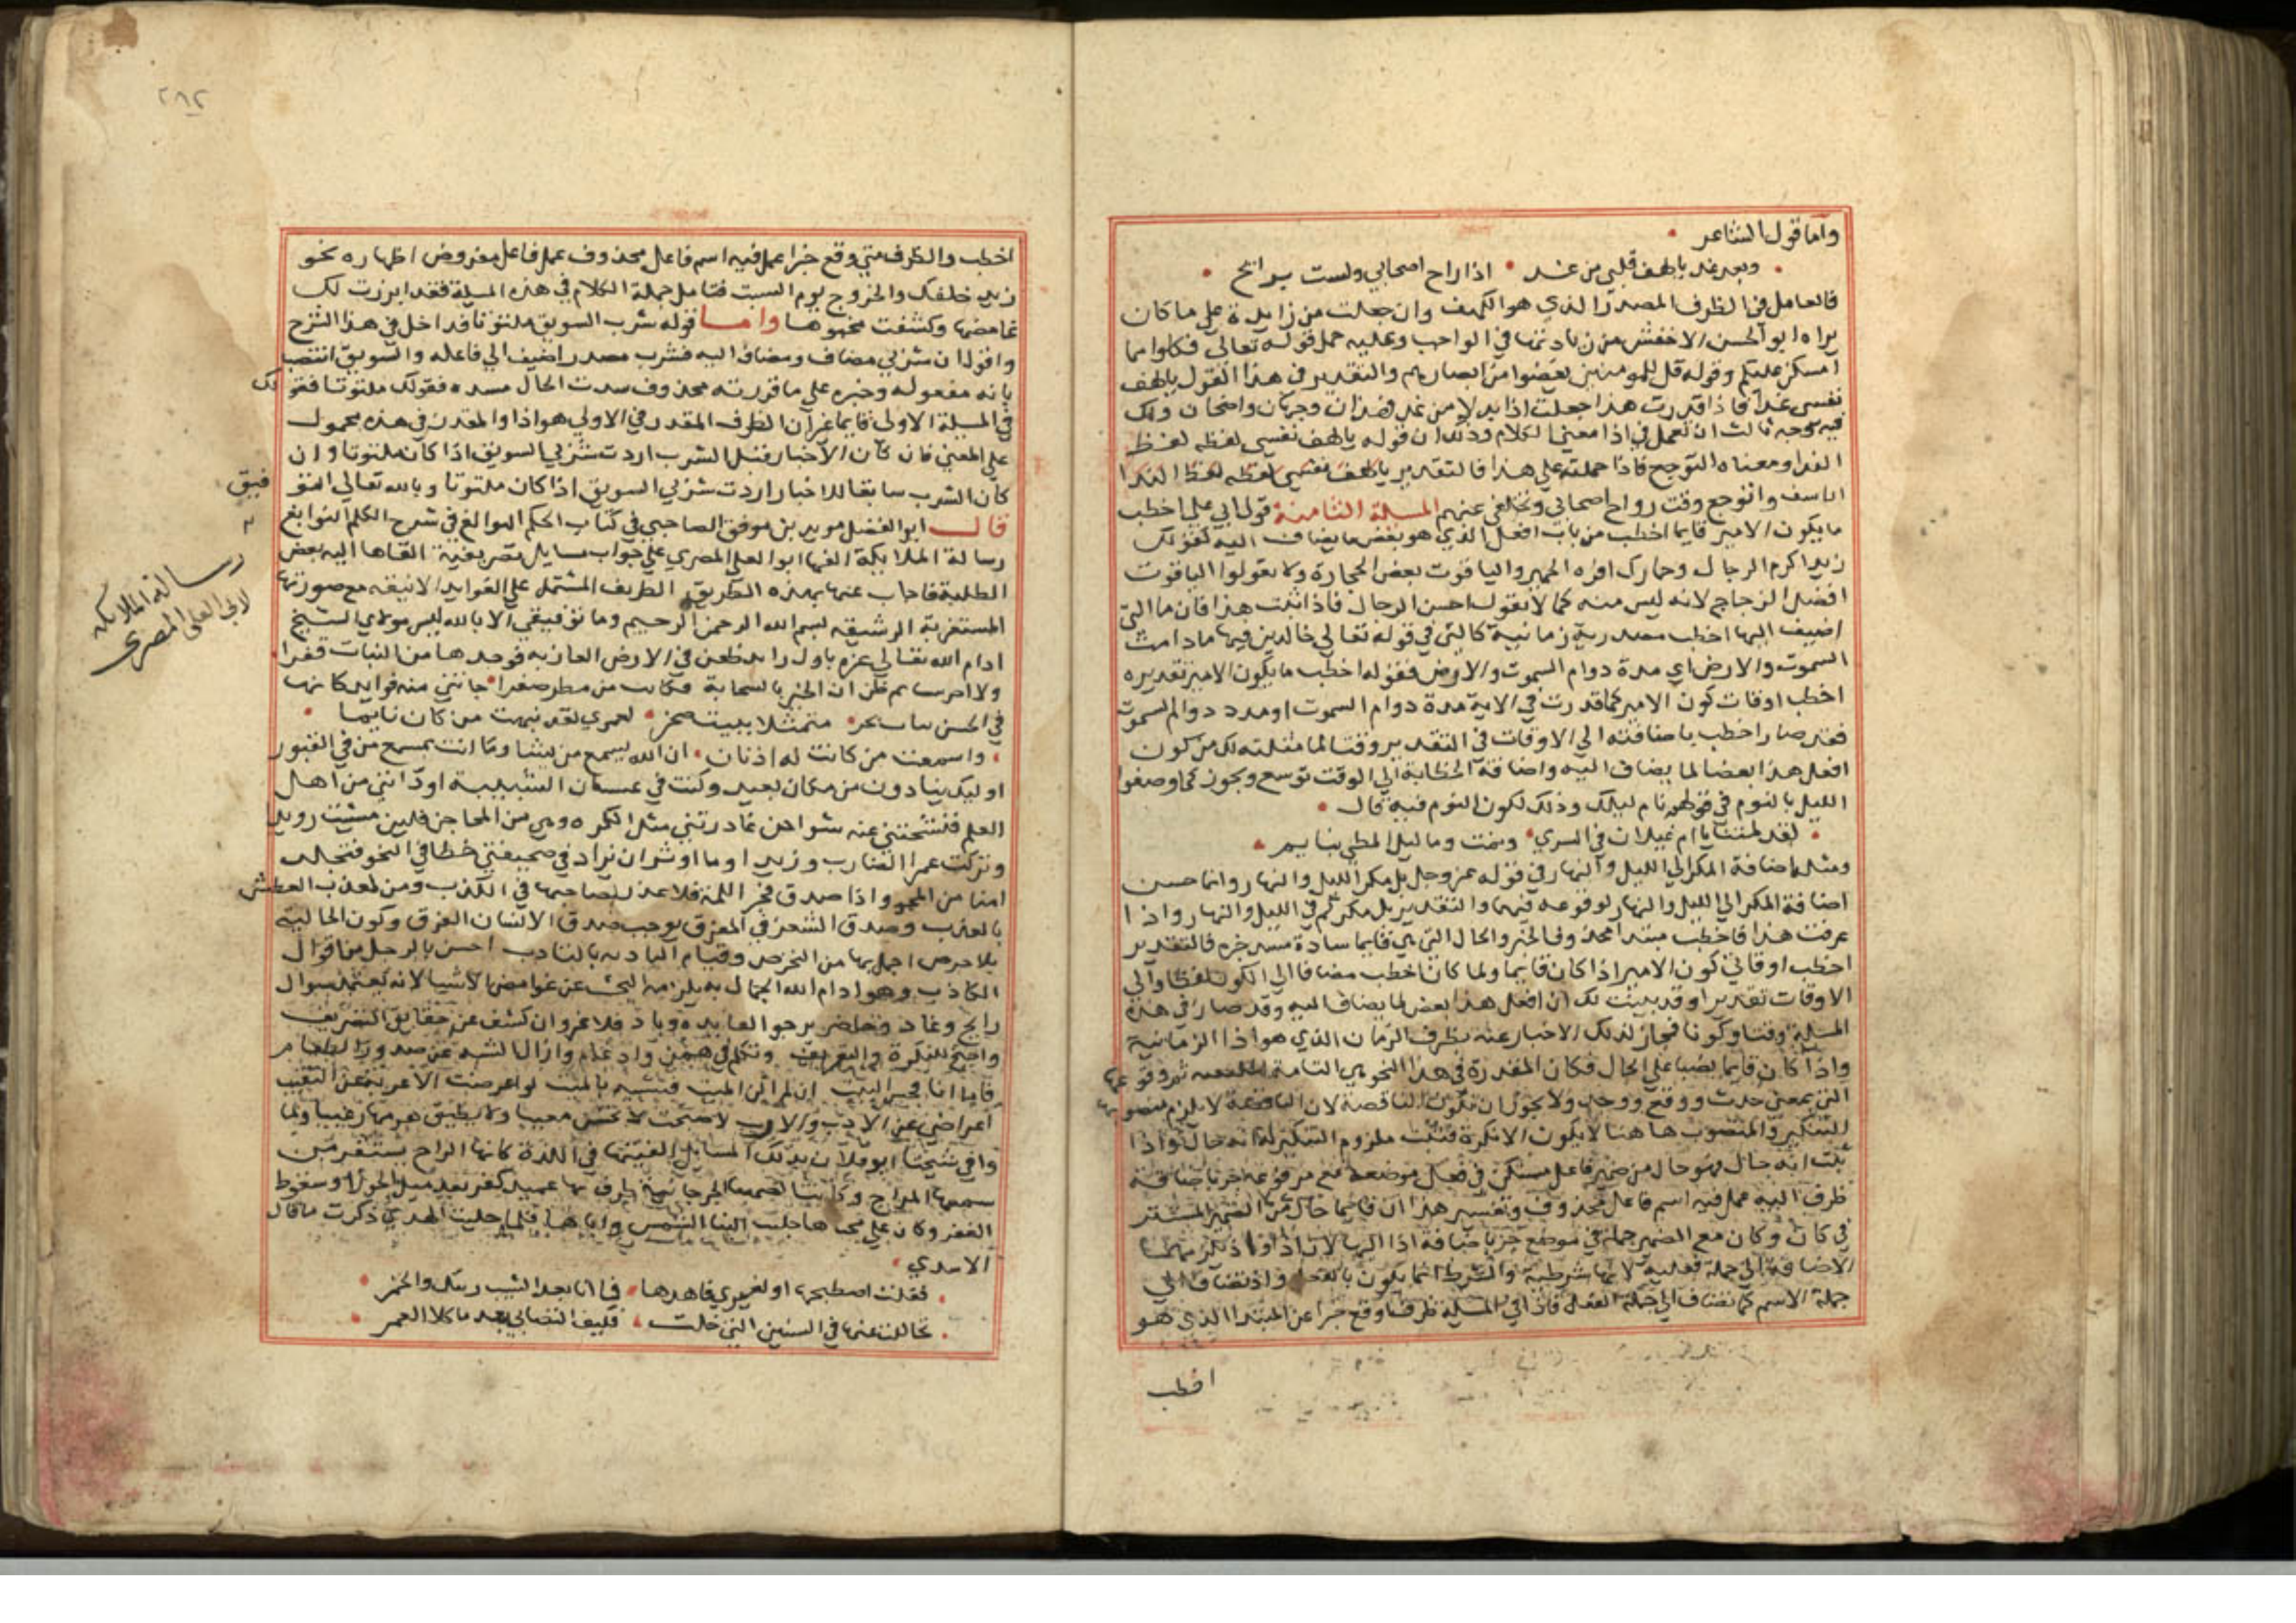 واما قول الشاعر
وبعد غد يا لهف قلبي من غد • اذا راح اصحابي ولست برائح
فالعامل في الظرف المصدر الذي هو اللهف وان جعلت من زايدة علي ما كان
يراه ابو الحسن الاخفش من زيادتها في الواجب وعليه حمل قوله تعالي فكلوا مما
امسكن عليكم وقوله قل للمومنين يغضوا من ابصارهم والتقدير في هذا القول يا لهف
نفسي غدا فاذا قدرت هذا جعلت اذا بدلا من غد فهذان وجهان واضحان ولك
فيه وجه ثالث ان تعمل في اذا معني الكلام وذلك ان قوله يا لهف نفسي لفظه لفظ
الندا ومعناه التوجع فاذا حملته علي هذا فالتقدير يا لهف نفسي لفظه لفظ الندا
اتاسف واتوجع وقت رواح اصحابي وتخلفي عنهم المسلة الثامنة قول ابي علي اخطب
ما يكون الامير قايما اخطب من باب افعل الذي هو بعض ما يضاف اليه كقولك
زيد اكرم الرجال وحمارك افره الحمير والياقوت بعض الحجارة ولا يقولوا الياقوت
افضل الزجاج لانه ليس منه كما لا تقول احسن الرجال فاذا ثبت هذا فان ما التي
اضيف اليها اخطب مصدرية زمانية كالتي في قوله تعالي خالدين فيها ما دامت
السموت والارض اي مدة دوام السموت والارض فقوله اخطب ما يكون الامير تقديره
اخطب اوقات كون الامير كما قدرت في الاية مدة دوام السموت او مدد دوام السموت
فقد صار اخطب باضافته الي الاوقات في التقدير وقتا لما مثلته لك من كون
افعل هذا بعضا لما يضاف اليه واضافة الخطابة الي الوقت توسع وتجوز كما وصفوا
الليل بالنوم في قولهم نام ليلك وذلك لكون النوم فيه قال •
لقد لمتنا يا ام غيلان في السري • ونمت وما ليل المطي بنايم
ومثله اضافة المكر الي الليل والنهار في قوله عز وجل بل مكر الليل والنهار وانما حسن
اضافة المكر الي الليل والنهار لوقوعه فيهما والتقدير بل مكركم في الليل والنهار واذا
عرفت هذا فاخطب مبتدا محذوف الخبر والحال التي هي قايما سادة مسد خبره فالتقدير
اخطب اوقات كون الامير اذا كان قايما ولما كان اخطب مضافا الي الكون لفظا والي
الاوقات تقديرا وقد بينت لك ان افعل هذا بعض لما يضاف اليه وقد صار في هذه
المسلة وقتا وكونا فجاز لذلك الاخبار عنه بظرف الزمان الذي هو اذا الزمانية
واذا كان قايما نصبا علي الحال فكان المقدرة في هذا النحو هي التامة
التي بمعني حدث ووقع ووجد ولا يجوز ان تكون الناقصة لان الناقصة لا يلزم منصوبها
التنكير والمنصوب هاهنا لا يكون الا نكرة فثبت ملزوم التنكير له انه حال واذا
ثبت انه حال فهو حال من ضمير فاعل مستكن في فعل موضعه مع مرفوعه جر باضافة
ظرف اليه عمل فيه اسم فاعل محذوف وتفسير هذا ان قايما حال من الضمير المستتر
في كان وكان مع المضمر جملة في موضع جر باضافة اذا اليها لان اذا واذ يلزمهما
الاضافة الي جملة فعلية لانها شرطية والشرط انما يكون بالفعل واذ تضاف الي
جملة الاسم كما تضاف الي جملة الفعل فاذا في المسلة ظرف وقع خبرا عن المبتدا الذي هو
اخطب
٢٨٢
اخطب والظرف متي وقع خبرا عمل فيه اسم فاعل محذوف عمل فاعل مفروض اظهاره نحو
زيد خلفك والخروج يوم السبت فتامل جملة الكلام في هذه المسلة فقد ابرزت لك
غامضها وكشفت مخبوها واما قوله شرب السويق ملتوتا فداخل في هذا الشرح
واقول ان شربي مضاف ومضاف اليه فشرب مصدر اضيف الي فاعله والسويق انتصب
بانه مفعوله وخبره علي ما قررته محذوف سدت الحال مسده فقولك ملتوتا فقولك
في المسلة الاولي قايما غير ان الظرف المقدر في الاولي هو اذا والمقدر في هذه محمول
علي المعني فان كان الاخبار قبل الشرب اردت شربي السويق اذا كان ملتوتا وان
كان الشرب سابقا للاخبار اردت شربي السويق اذ كان ملتوتا وبالله تعالي التوفيق
قال ابو الفضل مويد بن موفق الصاحبي في كتاب الحكم البوالغ في شرح الكلم النوابغ
رسالة الملايكة الفها ابو العلي المصري علي جواب مسايل تصريفية القاها اليه بعض
الطلبة فاجاب عنها بهذه الطريق الظريف المشتمل علي الفوايد الانيقه مع صورتها
المستغربة الرشيقه بسم الله الرحمن الرحيم وما توفيقي الا بالله ليس مولاي الشيخ
ادام الله تعالي عزه باول رايد ظعن في الارض العازبه فوجدها من النبات قفرا
ولا اخر سايم ظن ان الخير بالسحابة فكانت من مطر صفرا • جاتني منه فوايد كانها
في الحسن بنات بحر • متمثلا ببيت صخر • لعمري لقد نبهت من كان نايما •
• واسمعت من كانت له اذنان • ان الله يسمع من يشا وما انت بمسمع من في القبور
اوليك ينادون من مكان بعيد وكنت في غيسان الشبيبة اود انني من اهل
العلم فشجنتني عنه شواجن غادرتني مثل الكره رهين المحاجن فلين مشيت رويدا
وتركت عمرا الضارب وزيدا وما اوثر ان يزاد في صحيفتي خطا في النحو فتخلد
امنا من المحو واذا صدق فجر اللمة فلا عذر لصاحبها في الكذب ومن لمعذب العطش
بالعذب وصدق الشعر في المفرق يوجب صدق الانسان الفرق وكون الحالية
بلا خرص اجمل بها من التخرص وقيام النادبه بالنادب احسن بالرجل من اقوال
الكاذب وهو ادام الله الجمال به يلزمه البحث عن غوامض الاشيا لانه يعتمد بسوال
رايح وغاد وحاضر يرجو الفايده وباد فلا غرو ان كشف عن حقايق التصريف
واحتج للنكرة والتعريف وتكلم في همز وادغام وازال الشبه عن صدور الطغام
فاما انا فحلس البيت ان لم اكن الميت فشبيه بالميت لو اعرضت الاغربة عن النعيب
اعراضي عن الادب والاديب لاصبحت لا تحسن نعيبا ولا يطيق هرمها زغيبا ولما
وافي شيخنا ابو فلان بتلك المسايل الفيتها في اللذة كانها الراح يستفز من
سمعها المراح وكانت الصهبا الجرجانية طرق بها عميد كفر بعد ميل الجوزا وسقوط
الغفر وكان علي يحياها جلبت الينا الشمس واياها فلما جليت الهدي ذكرت ما قال
الاسدي •
• فقلت اصطبحها او لغيري فاهدها • فما انا بعد الشيب ريبك والخمر •
• تجاللت عنها في السنين التي خلت • فكيف التصابي بعد ما كلا العمر •
رسالة الملايكه
لابي العلى المصري